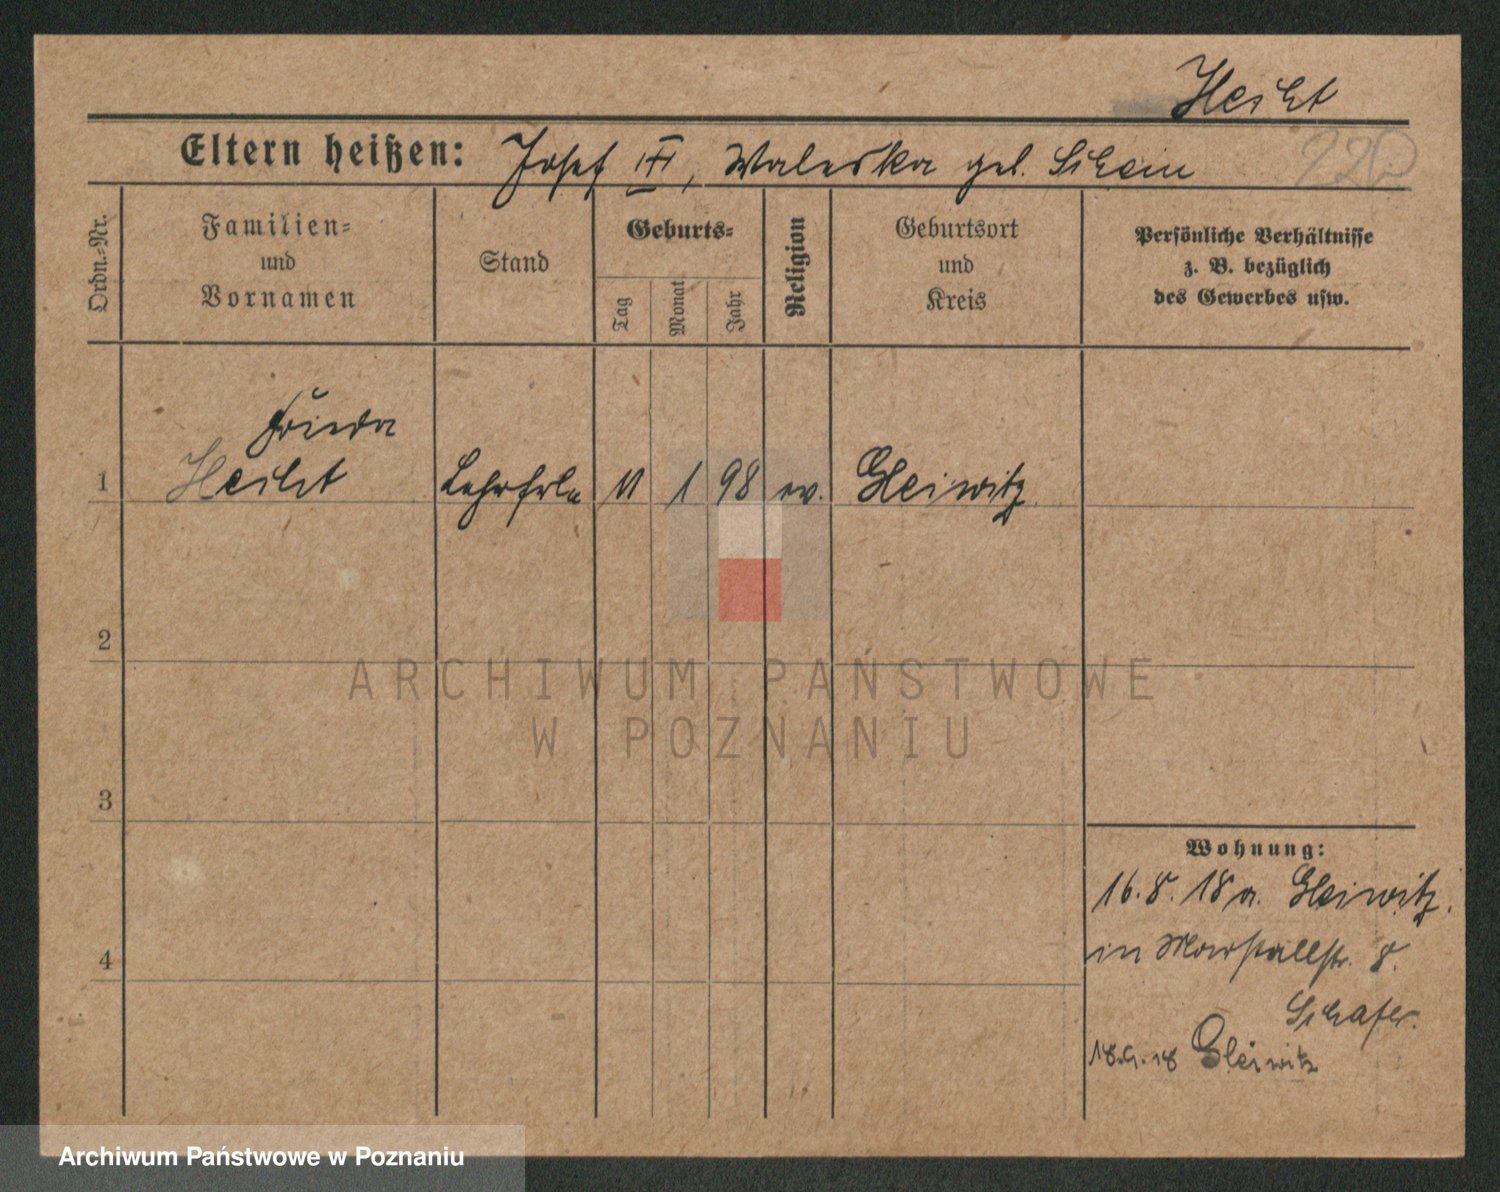 Hecht
Eltern heißen: Josef III, Waleska geb. Schein
Ordn.-Nr.
Familien-
und
Vornamen
Stand
Geburts-
Tag
Monat
Jahr
Religion
Geburtsort
und
Kreis
Persönliche Verhältnisse
z. B. bezüglich
des Gewerbes usw.
Frieda
1 Hecht Lehrfrln 11 1 98 ev. Gleiwitz
2
ARCHIWUM PAŃSTWOWE
W POZNANIU
3
Wohnung:
16.8.18 a. Gleiwitz.
in Marstallstr. 8.
4
Schäfer.
18.9.18 Gleiwitz
Archiwum Państwowe w Poznaniu